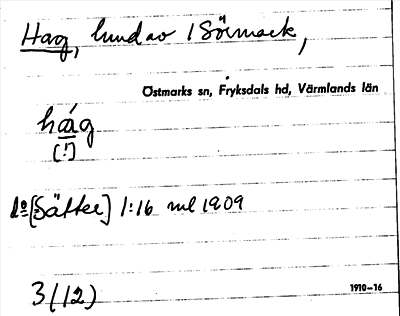 Hag, hmd av 1 Sörmark,
Östmarks sn, Fryksdals hd, Värmlands län
hág
[!]
do [Sätter] 1:16 ml 1909
3 (12)
1910–16